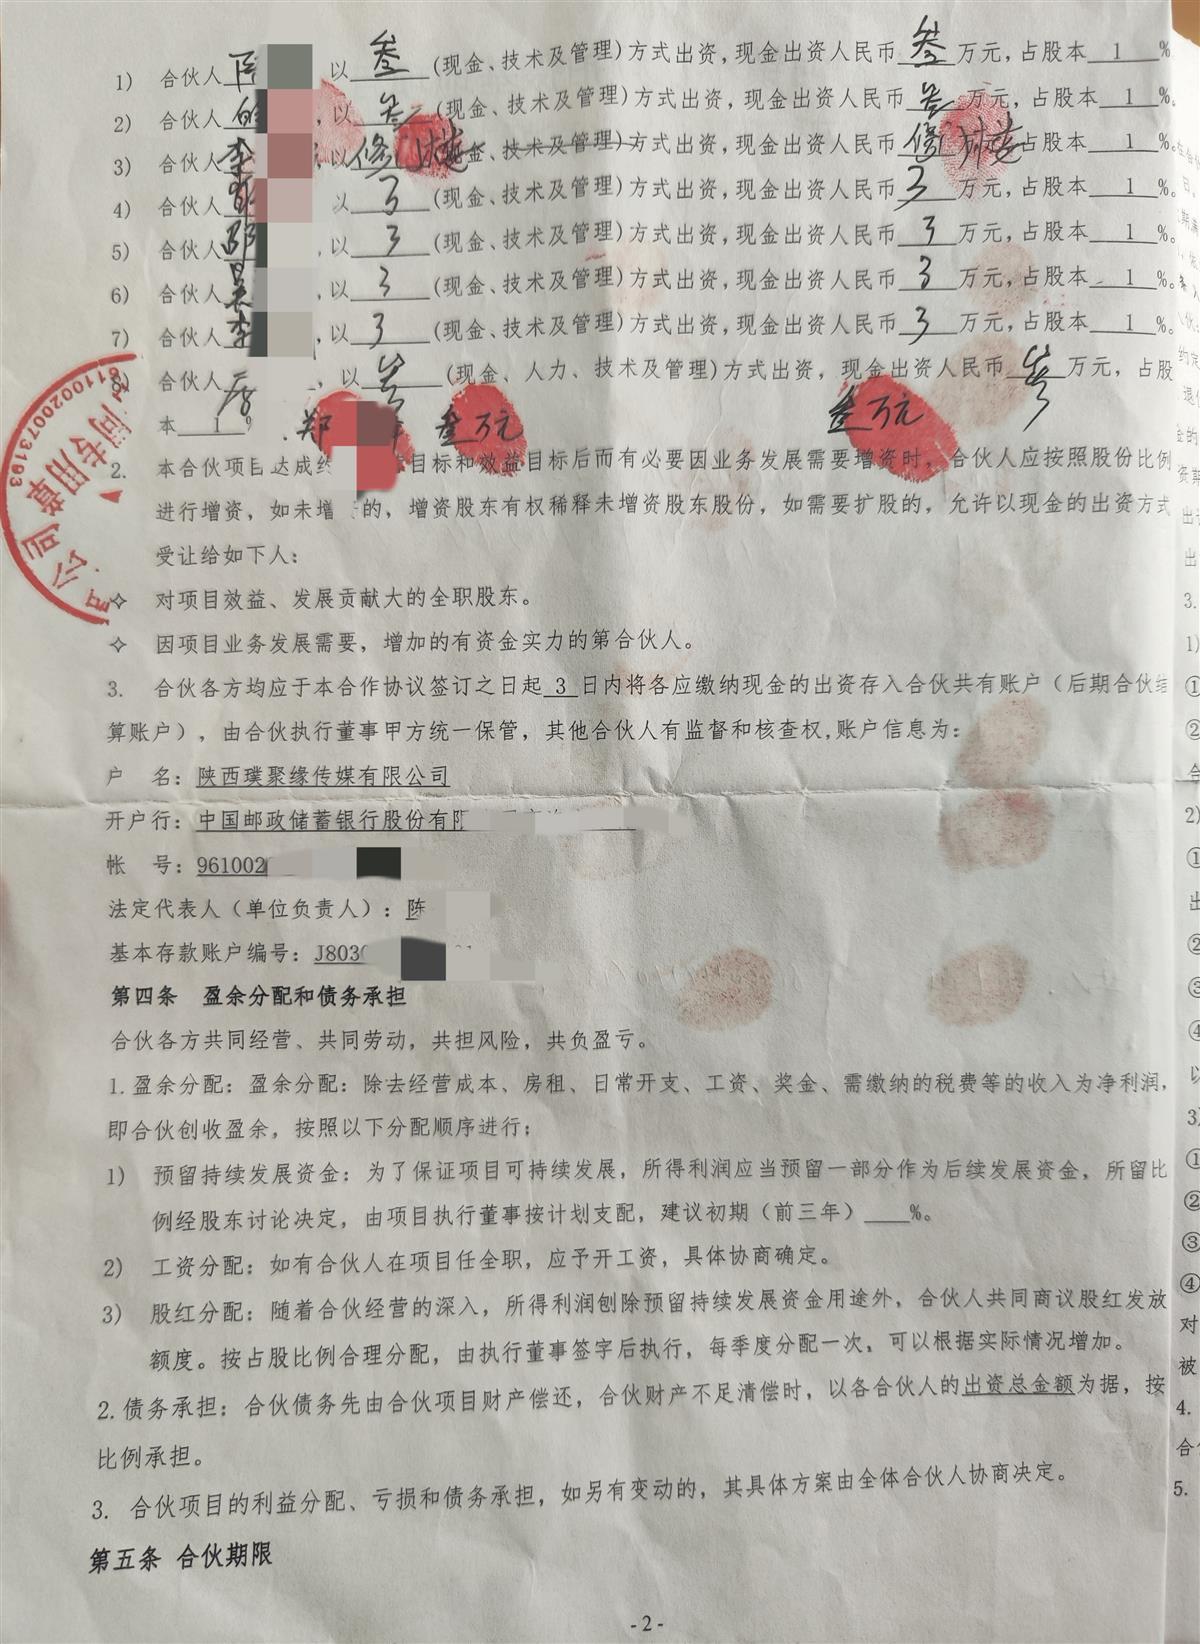 1) 合伙人 以叁(现金、技术及管理)方式出资，现金出资人民币叁万元，占股本 1 %
2) 合伙人 ，以叁(现金、技术及管理)方式出资，现金出资人民币叁万元，占股本 1 %。
3) 合伙人李 以 金、技术及管理)方式出资，现金出资人民币 占股本 1 %。
4) 合伙人 以3(现金、技术及管理)方式出资，现金出资人民币3万元，占股本 1 %。
5) 合伙人邵 ，以3(现金、技术及管理)方式出资，现金出资人民币3万元，占股本 1 %。
6) 合伙人吴 ，以3(现金、技术及管理)方式出资，现金出资人民币3万元，占股本 1 %。
7) 合伙人李 ，以3(现金、技术及管理)方式出资，现金出资人民币3万元，占股本 1 %。
合伙人 ，以叁(现金、人力、技术及管理)方式出资，现金出资人民币叁万元，占股
本 1 %
郑 叁万元 叁万元
2. 本合伙项目达成 目标和效益目标后而有必要因业务发展需要增资时，合伙人应按照股份比例
进行增资，如未增 的，增资股东有权稀释未增资股东股份，如需要扩股的，允许以现金的出资方式
受让给如下人：
✧ 对项目效益、发展贡献大的全职股东。
✧ 因项目业务发展需要，增加的有资金实力的第合伙人。
3. 合伙各方均应于本合作协议签订之日起 3 日内将各应缴纳现金的出资存入合伙共有账户（后期合伙结
算账户），由合伙执行董事甲方统一保管，其他合伙人有监督和核查权,账户信息为：
户 名：陕西璞聚缘传媒有限公司
开户行：中国邮政储蓄银行股份有限
帐 号：961002
法定代表人（单位负责人）：陈
基本存款账户编号：J8030
第四条 盈余分配和债务承担
合伙各方共同经营、共同劳动，共担风险，共负盈亏。
1.盈余分配：盈余分配：除去经营成本、房租、日常开支、工资、奖金、需缴纳的税费等的收入为净利润，
即合伙创收盈余，按照以下分配顺序进行；
1) 预留持续发展资金：为了保证项目可持续发展，所得利润应当预留一部分作为后续发展资金，所留比
例经股东讨论决定，由项目执行董事按计划支配，建议初期（前三年）____%。
2) 工资分配：如有合伙人在项目任全职，应予开工资，具体协商确定。
3) 股红分配：随着合伙经营的深入，所得利润刨除预留持续发展资金用途外，合伙人共同商议股红发放
额度。按占股比例合理分配，由执行董事签字后执行，每季度分配一次，可以根据实际情况增加。
2.债务承担：合伙债务先由合伙项目财产偿还，合伙财产不足清偿时，以各合伙人的出资总金额为据，按
比例承担。
3. 合伙项目的利益分配、亏损和债务承担，如另有变动的，其具体方案由全体合伙人协商决定。
第五条 合伙期限
- 2 -
公司
同专用章
6110020073193